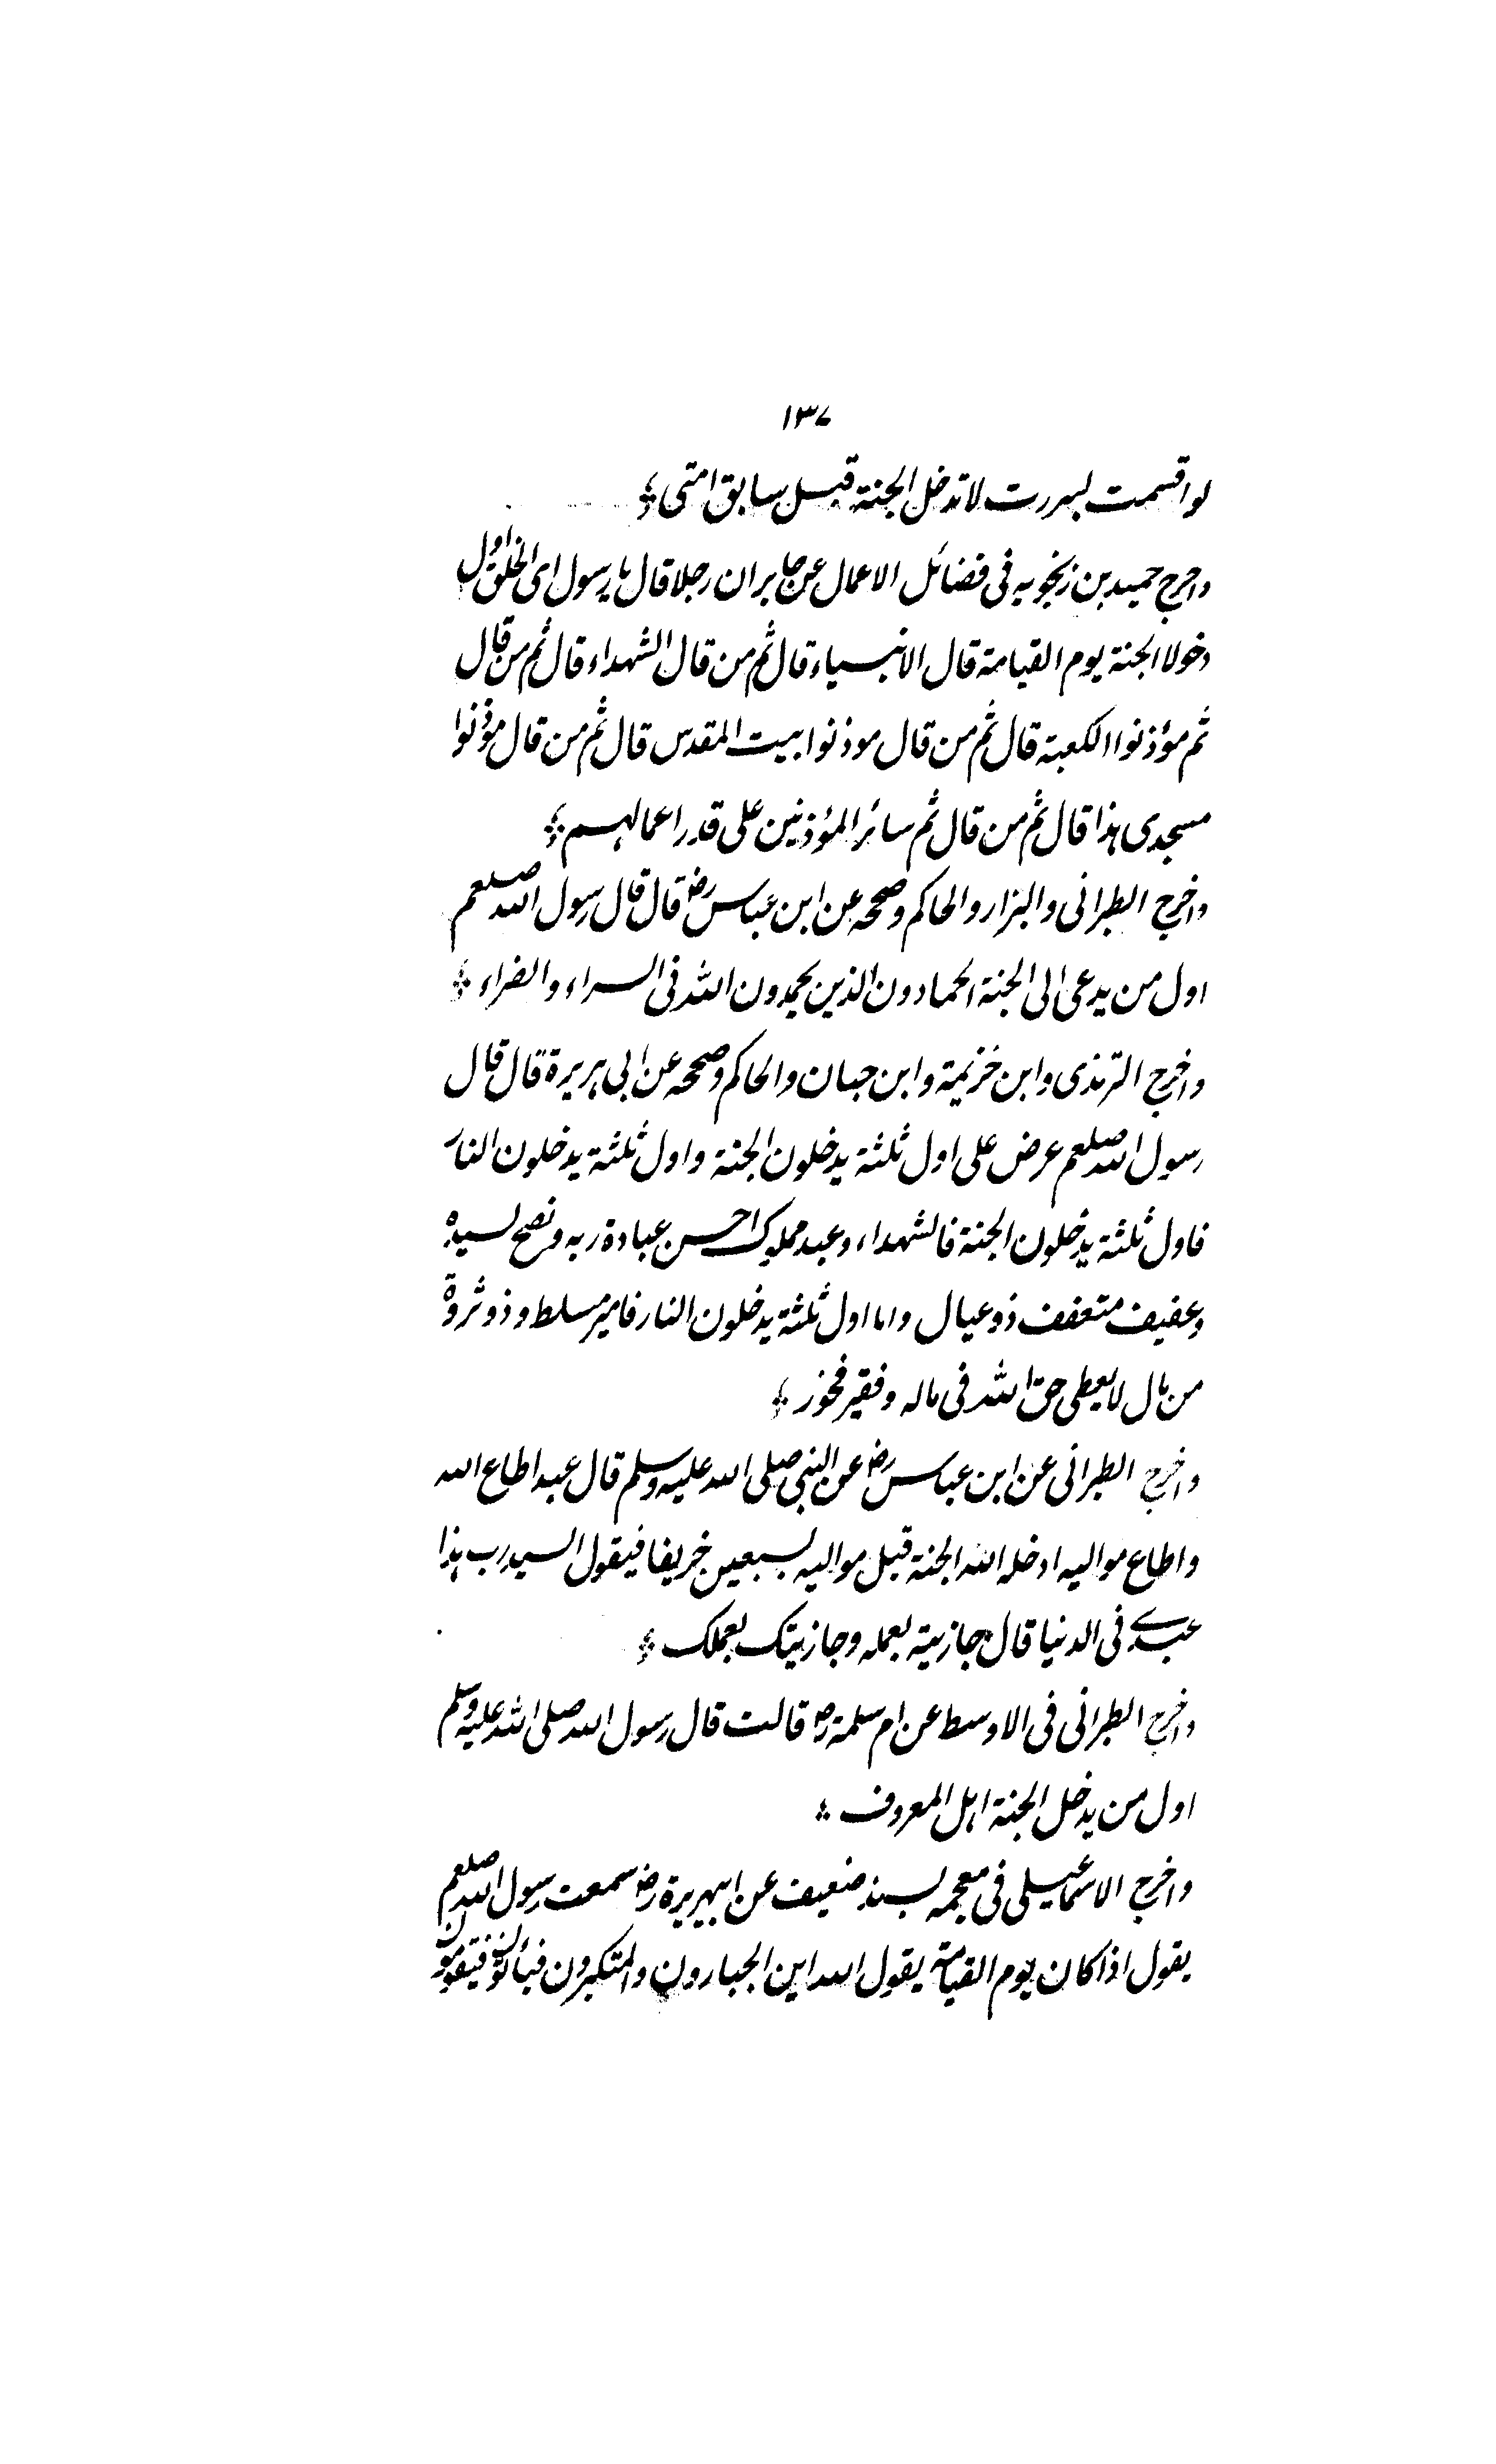 ۱۳۷
لو اقسمت لبررت لا تدخل الجنة قبل سابق امتی
واخرج حمید بن زنجویه فی فضائل الاعمال عن جابر ان رجلا قال یا رسول ای الخلق اول
دخولا الجنة یوم القیامة قال الانبیاء قال ثم من قال الشهداء قال ثم من قال
ثم مؤذنوا الکعبة قال ثم من قال موذنوا بیت المقدس قال ثم من قال مؤذنوا
مسجدی هذا قال ثم من قال ثم سائر المؤذنین علی قدر اعمالهم
واخرج الطبرانی والبزار والحاکم وصححه عن ابن عباس رض قال قال رسول الله صلعم
اول من یدعی الی الجنة الحمادون الذین یحمدون الله فی السراء والضراء
واخرج الترمذی وابن خزیمة وابن حبان والحاکم وصححه عن ابی هریرة قال قال
رسول الله صلعم عرض علی اول ثلثة یدخلون الجنة واول ثلثة یدخلون النار
فاول ثلثة یدخلون الجنة فالشهداء وعبد مملوک احسن عبادة ربه ونصح لسیده
وعفیف متعفف ذو عیال واما اول ثلثة یدخلون النار فامیر مسلط وذو ثروة
من مال لا یعطی حق الله فی ماله وفقیر فخور
واخرج الطبرانی عن ابن عباس رض عن النبی صلی الله علیه وسلم قال عبد اطاع الله
واطاع موالیه ادخله الله الجنة قبل موالیه بسبعین خریفا فیقول السید رب هذا
عبدی فی الدنیا قال جازیته بعمله وجازیتک بعملک
واخرج الطبرانی فی الاوسط عن ام سلمة رض قالت قال رسول الله صلی الله علیه وسلم
اول من یدخل الجنة اهل المعروف
واخرج الاسماعیلی فی معجمه بسند ضعیف عن ابیهریرة رض سمعت رسول الله صلعم
یقول اذا کان یوم القیامة یقول الله این الجبارون والمتکبرون